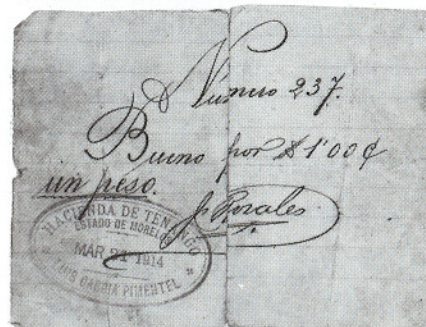 Número 237.
Bueno por $1'00¢
un peso.
Rosales
HACIENDA DE TENANGO
ESTADO DE MORELOS
MAR 21 1914
LUIS GARCIA PIMENTEL